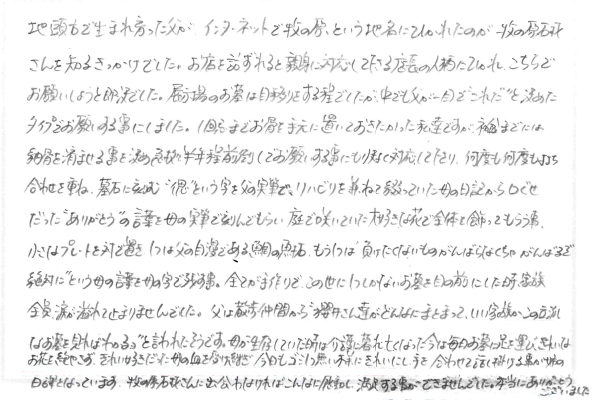 地頭方で生まれ育った父が、インターネットで牧の原、という地名にひかれたのが牧の原石材
さんを知るきっかけでした。お店を訪ずれると親身に対応して下さる店長の人柄にひかれ、こちらで
お願いしようと即決でした。展示場のお墓は目移りする程でしたが、中でも父が一目で"これだ"と決めた
タイプをお願いする事にしました。1回忌までお骨を手元に置いておきたかった私達ですが、初盆までには
納骨を済ませる事を決め、急拠半年程前倒してお願いする事にも快く対応して下さり、何度も何度も打ち
合わせを重ね、墓石に家風"偲"という字を父の実筆で、リハビリを兼ねて綴っていた母の日記から口ぐせ
だった"ありがとう"の言葉を母の実筆で刻んでもらい庭で咲いていた大好きな花で全体を飾ってもらう事、
小さなプレートを対で置き 1つは父の自慢である鯛の魚拓、もう1つは"負けたくないものがんばらなくちゃがんばるぞ
絶対に"という母の言葉を母の字で残す事。全てが手作りで、この世に1つしかないお墓を目の前にした時、家族
全員、涙が溢れて止まりませんでした。父は散歩仲間から"さん達がどんなにまとまって、いい家族かこの立派
なお墓を見ればわかるよ"と言われたそうです。母が生存していた時は介護に暮れ、亡くなった今は毎日お墓に足を運び、きれいな
お花を絶やさず、きれい好きだった母の血を今日もゴミ1つ無い様にきれいにし、手を合わせて話し掛ける事が父の
日課となっています。牧の原石材さんに出会わなければこんなに感動し、満足する事ができませんでした。本当にありがとう
ございました